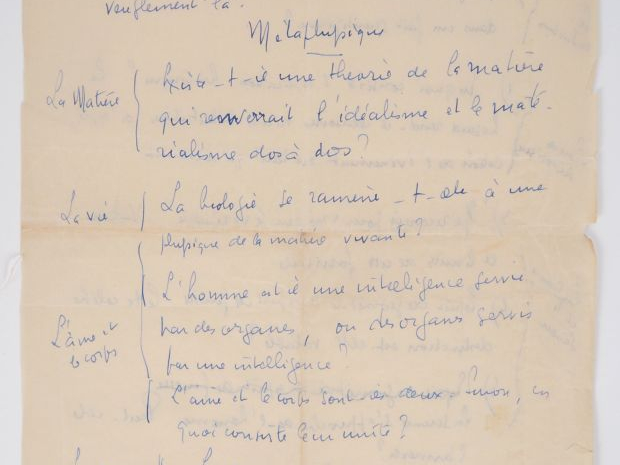 la.
Métaphysique
La Matière Existe-t-il une théorie de la matière
qui renverrait l'idéalisme et le maté-
rialisme dos à dos?
La vie La biologie se ramène-t-elle à une
physique de la matière vivante?
L'homme est-il une intelligence servie
L'âme et le corps par des organes, ou des organes servis
par une intelligence?
L'âme et le corps sont-ils deux. Sinon, en
quoi consiste leur unité?